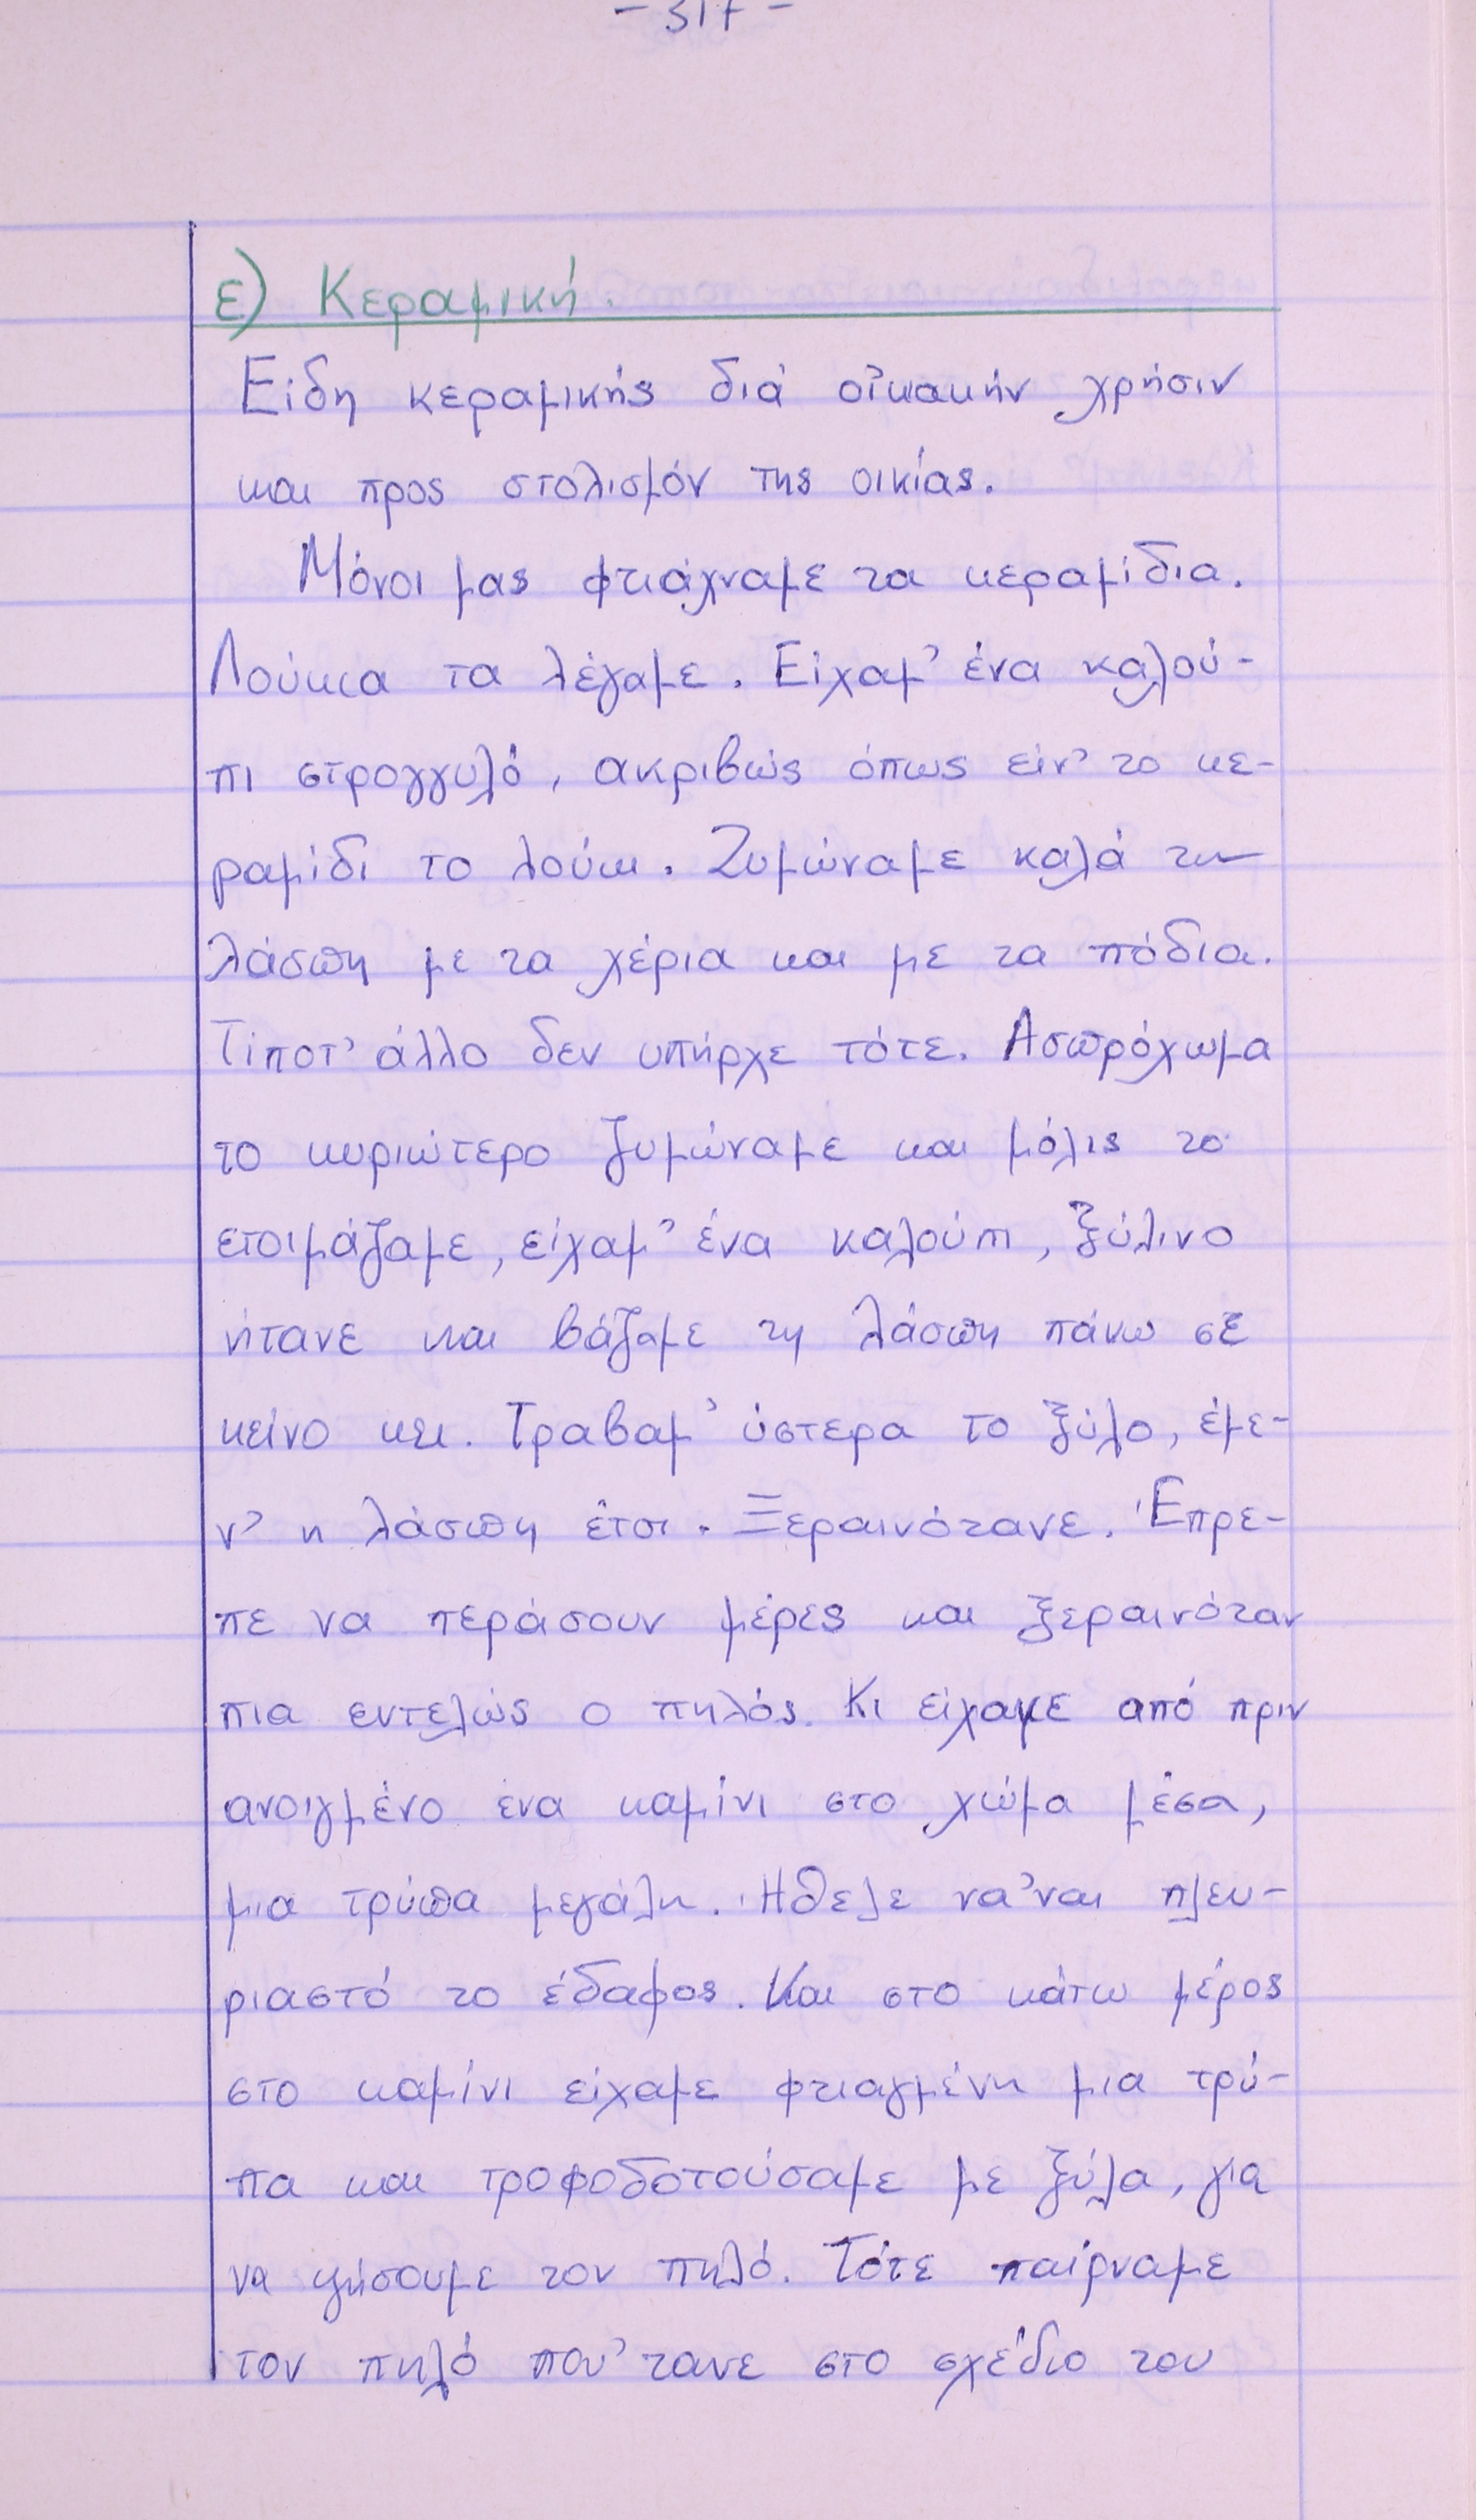 - 317 -
ε) Κεραμική.
Είδη κεραμικής διά οἰκακήν χρήσιν
και προς στολισμόν της οικίας.
Μόνοι μας φτιάχναμε τα κεραμίδια.
Λούκια τα λέγαμε. Είχαμ' ένα καλού-
πι στρογγυλό, ακριβώς όπως είν' το κε-
ραμίδι το λούκι. Ζυμώναμε καλά τη
λάσπη με τα χέρια και με τα πόδια.
Τίποτ' άλλο δεν υπήρχε τότε. Ασπρόχωμα
το κυριώτερο ζυμώναμε και μόλις το
ετοιμάζαμε, είχαμ' ένα καλούπι, ξύλινο
ήτανε και βάζαμε τη λάσπη πάνω σε
κείνο κει. Τραβαμ' ύστερα το ξύλο, έμε-
ν' η λάσπη έτσι. Ξεραινότανε. Έπρε-
πε να περάσουν μέρες και ξεραινόταν
πια εντελώς ο πηλός. Κι είχαμε από πριν
ανοιγμένο ένα καμίνι στο χώμα μέσα,
μια τρύπα μεγάλη. Ήθελε να'ναι πλευ-
ριαστό το έδαφος. Και στο κάτω μέρος
στο καμίνι είχαμε φτιαγμένη μια τρύ-
πα και τροφοδοτούσαμε με ξύλα, για
να ψήσουμε τον πηλό. Τότε παίρναμε
τον πηλό που'τανε στο σχέδιο του